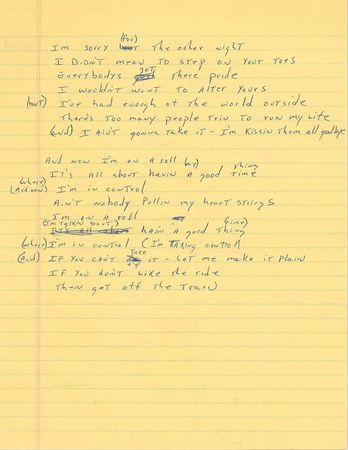 (for)
Im sorry the other night
I Didnt mean to step on your toes
Everybodys got there pride
I wouldn't want to Alter yours
(but) I've had enough of the world outside
There's too many people tryin to run my life
(and) I Ain't gonna take it - I'm Kissin them all goodbye
And now I'm on a roll by
It's All about havin a good time Thing
(where) (And now) I'm in control
Ain't nobody Pullin my heart strings
I'm on a roll
(I'm talkin bout) havin a good Thing (Time)
(where) I'm in control (I'm Taking control
(And) If you can't Take it - Let me make it plain
If you don't Like the ride
Then get off the Train)